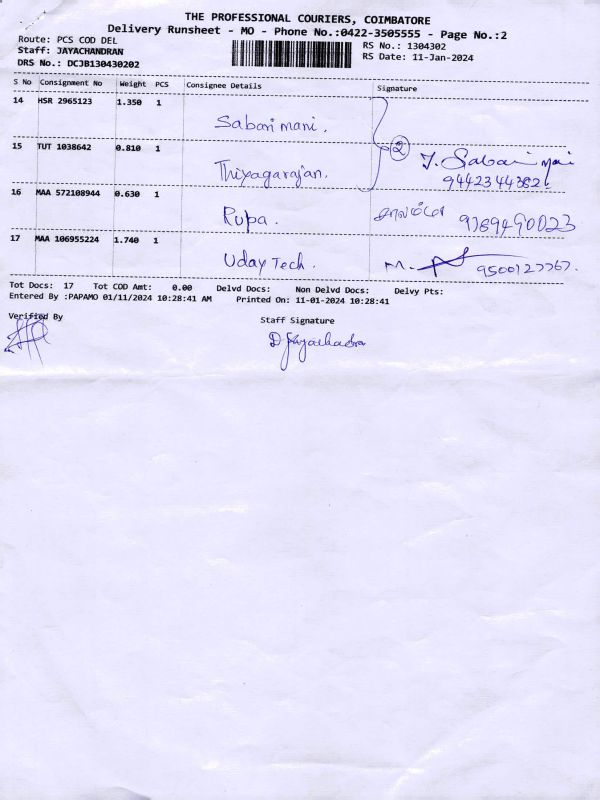 THE PROFESSIONAL COURIERS, COIMBATORE
Delivery Runsheet - MO - Phone No.:0422-3505555 - Page No.:2
Route: PCS COD DEL
RS No.: 1304302
Staff: JAYACHANDRAN
RS Date: 11-Jan-2024
DRS No.: DCJB130430202
S No Consignment No Weight PCS Consignee Details Signature
14 HSR 2965123 1.350 1 Sabarimani.
15 TUT 1038642 0.810 1 Thiyagarajan. 2 T. Sabarimani
9442344382
16 MAA 572108944 0.630 1 Rupa. 9789490023
17 MAA 106955224 1.740 1 Uday Tech. 9500127767.
Tot Docs: 17 Tot COD Amt: 0.00 Delvd Docs: Non Delvd Docs: Delvy Pts:
Entered By :PAPAMO 01/11/2024 10:28:41 AM Printed On: 11-01-2024 10:28:41
Verified By Staff Signature